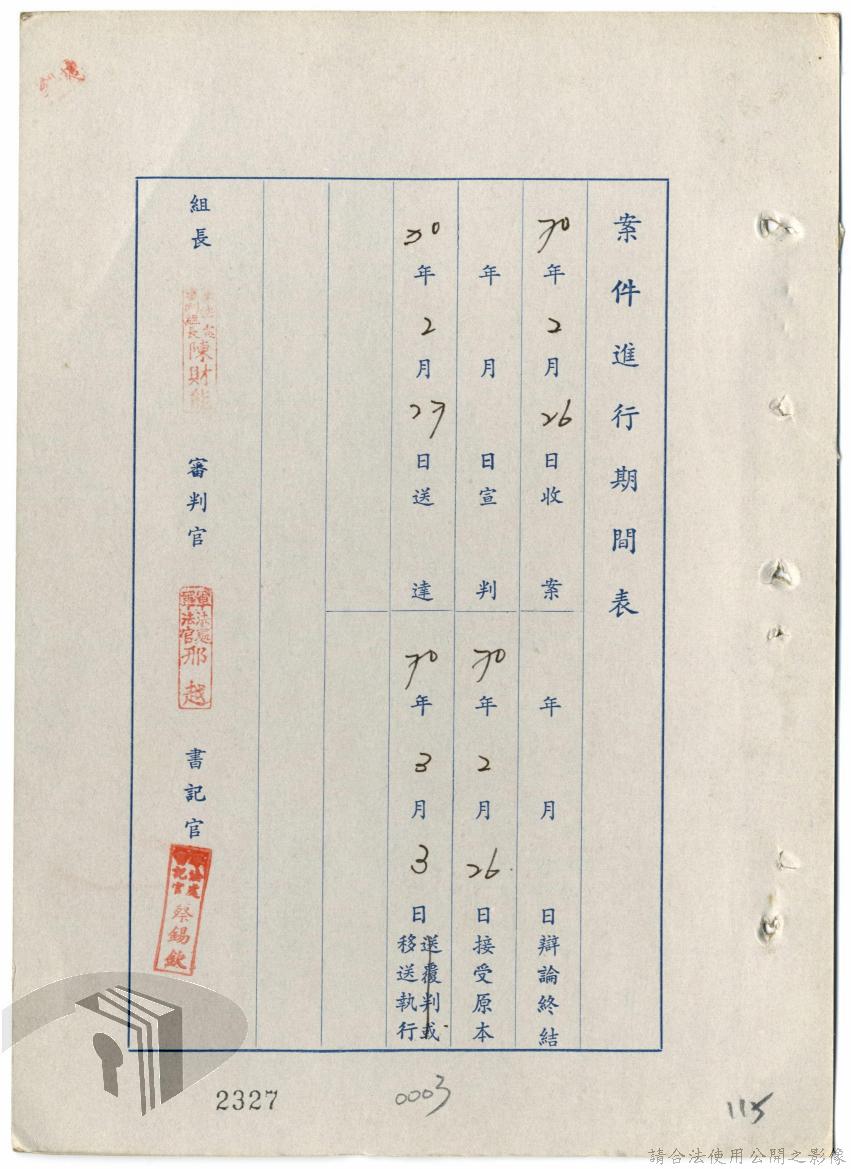 案件進行期間表
70年2月26日收案
年月日辯論終結
年月日宣判
70年2月26日接受原本
70年2月27日送達
70年3月3日送覆判或移送執行
組長
審判組長
陳財能
審判官
軍法處
軍法官
那越
書記官
法處
記官
蔡錫欽
2327
0003
115
請合法使用公開之影像